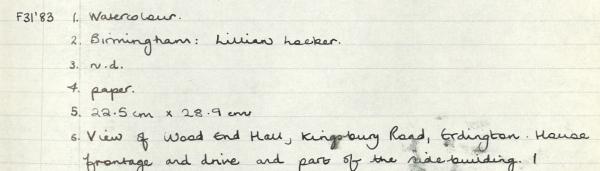 F31'83 1. Watercolour.
2. Birmingham: Lillian Locker.
3. n.d.
4. paper.
5. 22.5 cm x 28.9 cm
6. View of Wood End Hall, Kingsbury Road, Erdington. House
frontage and drive and part of the side building. 1